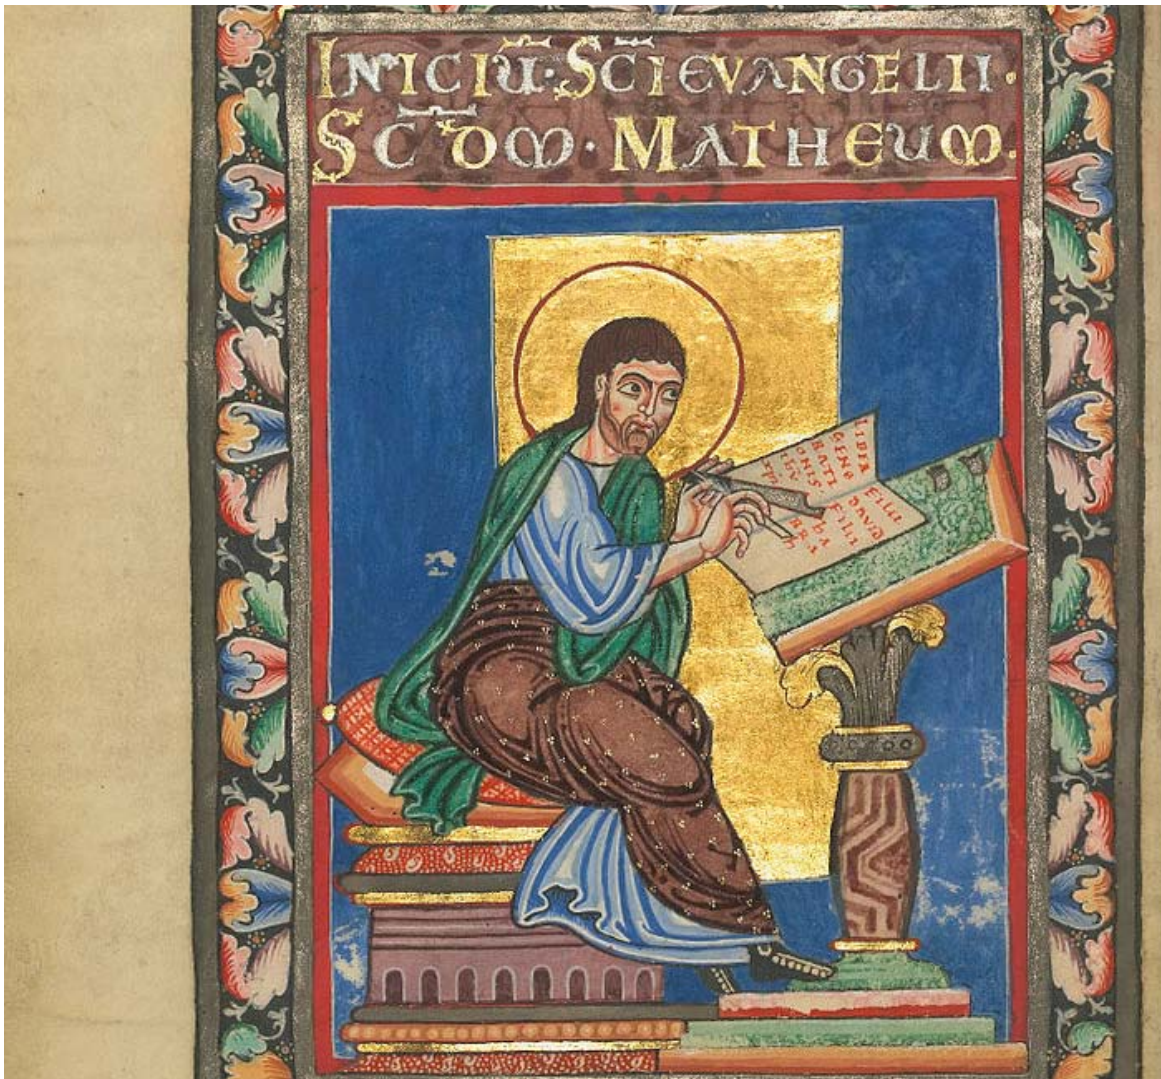 INICIŪ·SC̄I EVANGELII·
SC̄DM·MATHEUM.
LIBER
GENE
RATI
ONIS
IHV
XPI
Filii
DAVID
Filii